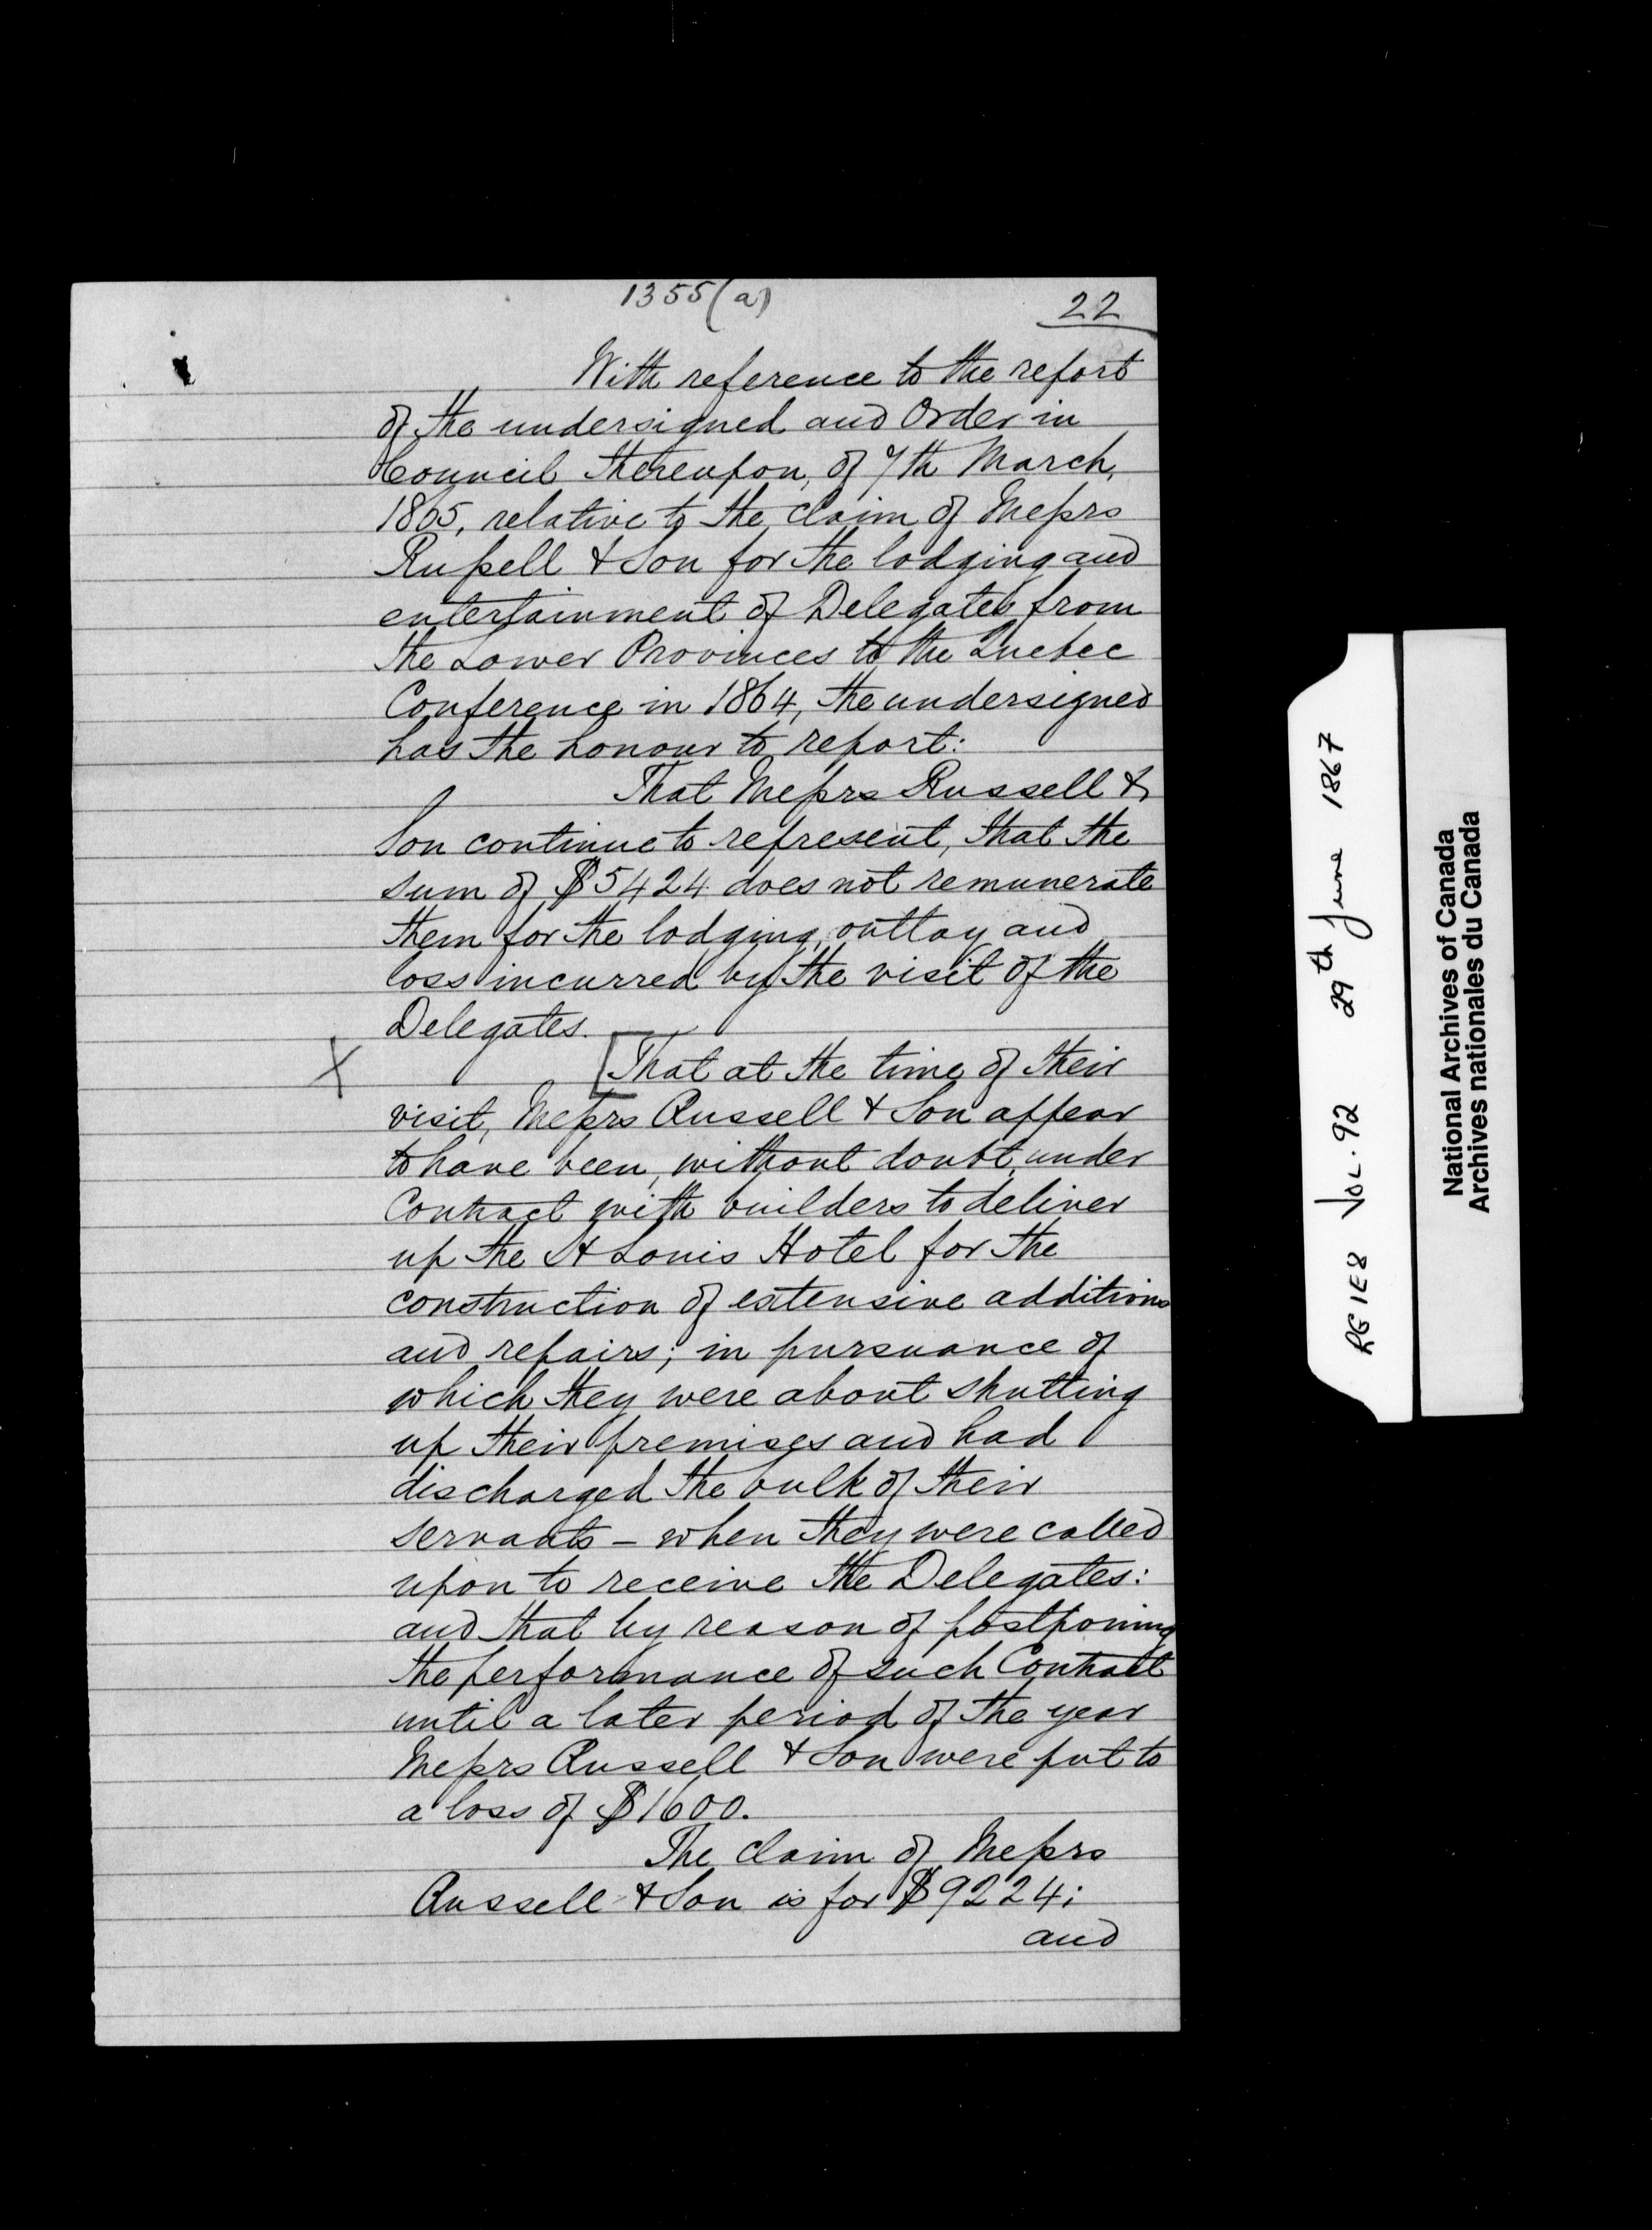 1355(a)
22
With reference to the report
of the undersigned and Order in
Council thereupon, of 7th March,
1865, relative to the claim of Messrs
Russell & Son for the lodging and
entertainment of Delegates from
the Lower Provinces to the Quebec
Conference in 1864, the undersigned
has the honour to report:
That Messrs Russell &
Son continue to represent, that the
sum of $5424 does not remunerate
them for the lodging, outlay and
loss incurred by the visit of the
Delegates.
X [That at the time of their
visit, Messrs Russell & Son appear
to have been, without doubt, under
Contract with builders to deliver
up the St Louis Hotel for the
construction of extensive additions
and repairs; in pursuance of
which they were about shutting
up their premises and had
discharged the bulk of their
servants – when they were called
upon to receive the Delegates:
and that by reason of postponing
the performance of such Contract
until a later period of the year
Messrs Russell & Son were put to
a loss of $1600.
The claim of Messrs
Russell & Son is for $9224;
and
RG 1E8 VOL. 92 29th June 1867
National Archives of Canada
Archives nationales du Canada